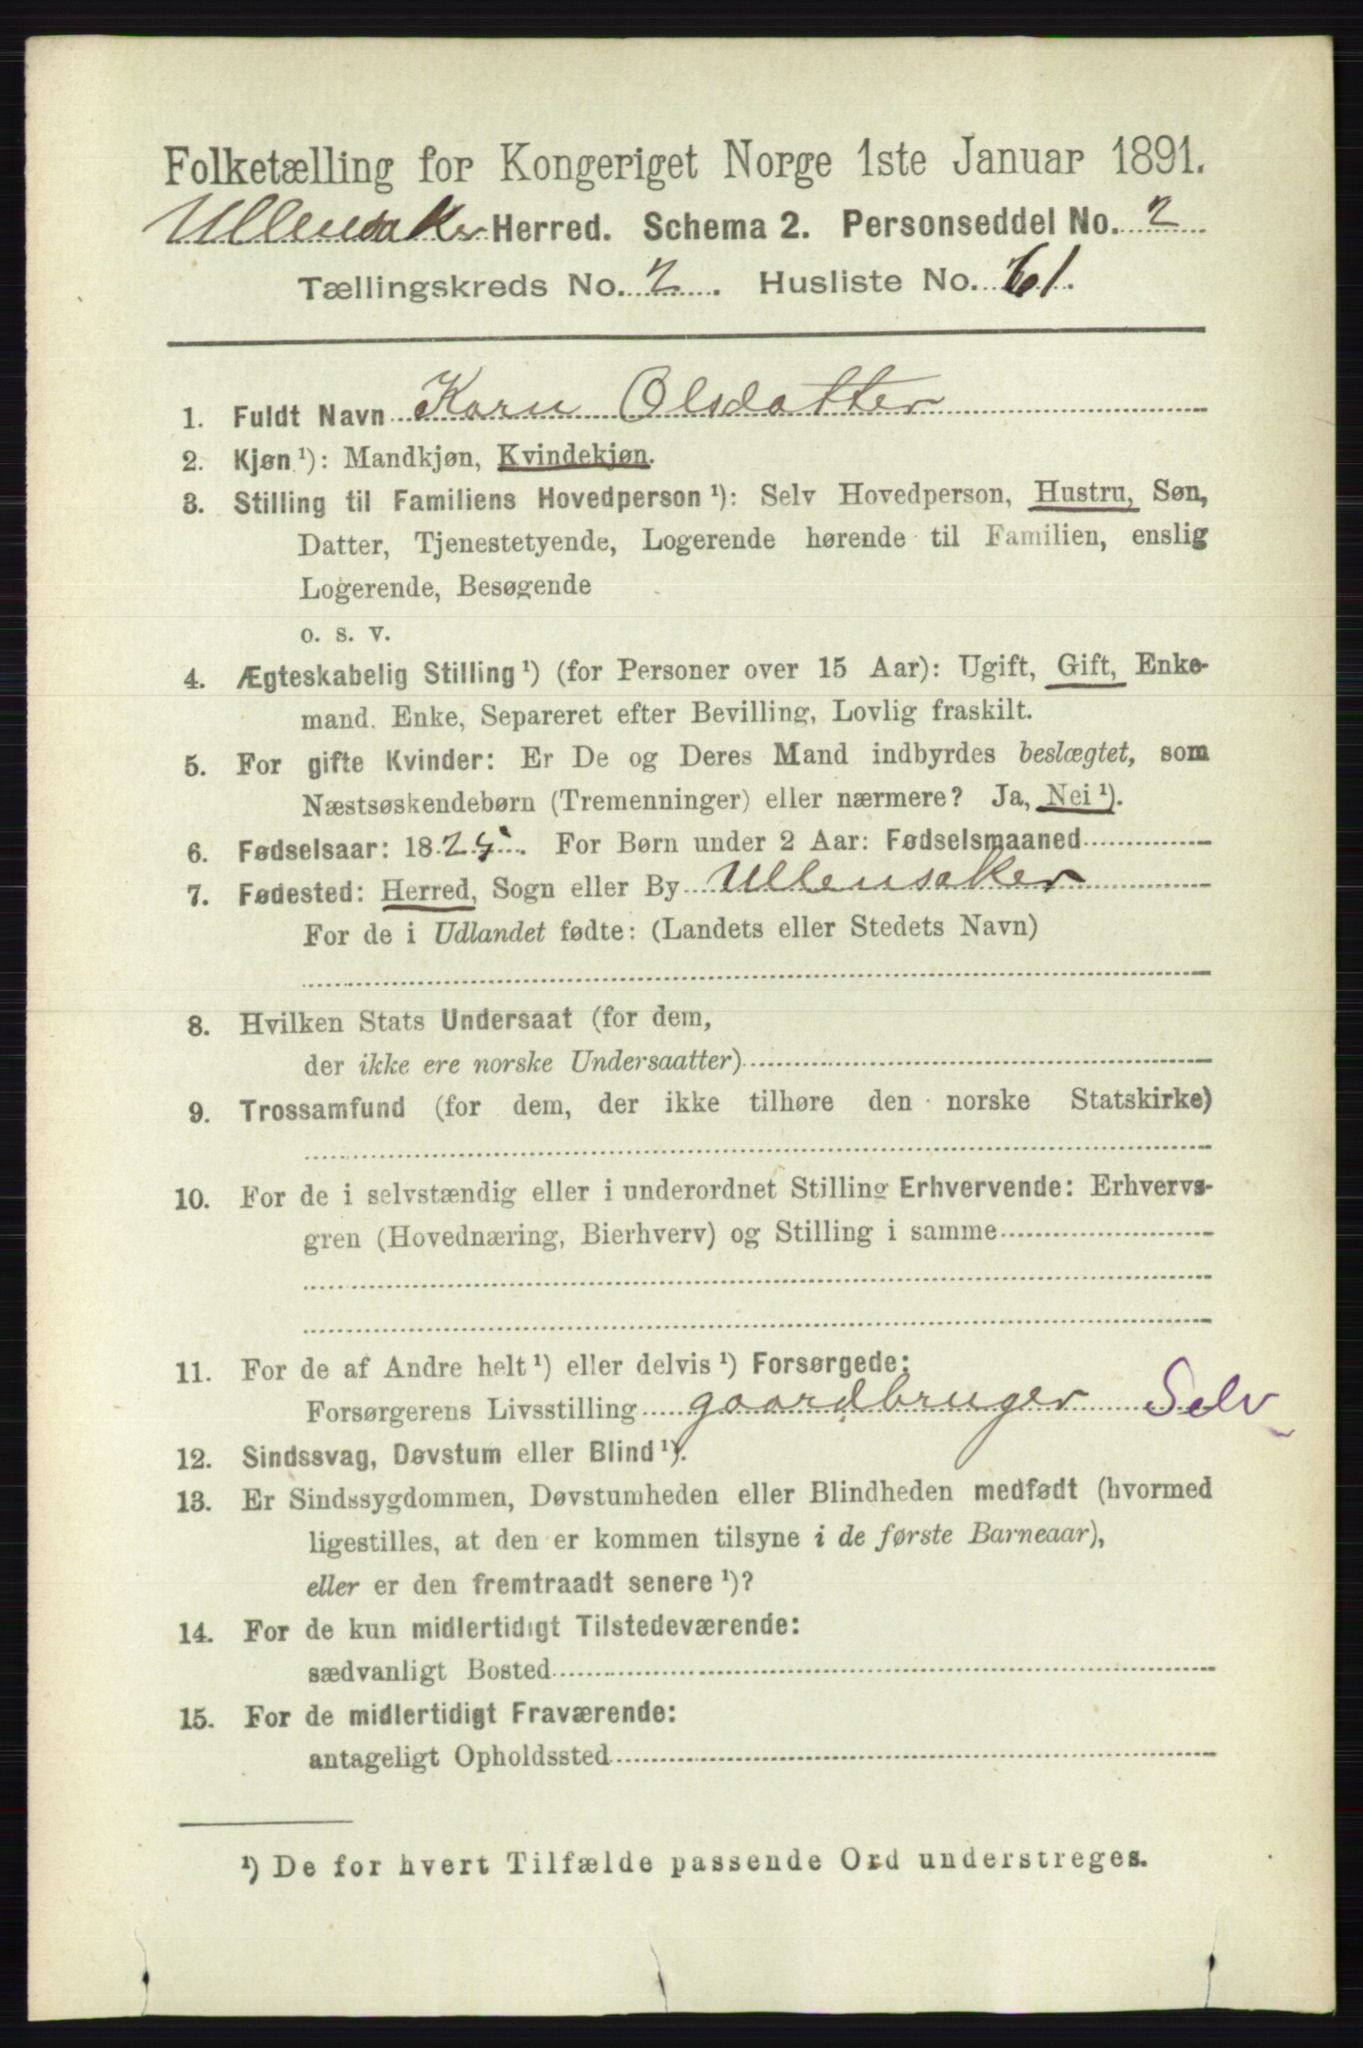 Folketælling for Kongeriget Norge 1ste Januar 1891.
Ullensaker Herred. Schema 2. Personseddel No. 2
Tællingskreds No. 2. Husliste No. 61.
1. Fuldt Navn Karu Olsdatter
2. Kjøn ¹): Mandkjøn, Kvindekjøn.
3. Stilling til Familiens Hovedperson ¹): Selv Hovedperson, Hustru, Søn,
Datter, Tjenestetyende, Logerende hørende til Familien, enslig
Logerende, Besøgende
o. s. v.
4. Ægteskabelig Stilling ¹) (for Personer over 15 Aar): Ugift, Gift, Enke-
mand, Enke, Separeret efter Bevilling, Lovlig fraskilt.
5. For gifte Kvinder: Er De og Deres Mand indbyrdes beslægtet, som
Næstsøskendebørn (Tremenninger) eller nærmere? Ja, Nei ¹).
6. Fødselsaar: 1825. For Børn under 2 Aar: Fødselsmaaned
7. Fødested: Herred, Sogn eller By Ullensaker
For de i Udlandet fødte: (Landets eller Stedets Navn)
8. Hvilken Stats Undersaat (for dem,
der ikke ere norske Undersaatter)
9. Trossamfund (for dem, der ikke tilhøre den norske Statskirke)
10. For de i selvstændig eller i underordnet Stilling Erhvervende: Erhvervs-
gren (Hovednæring, Bierhverv) og Stilling i samme
11. For de af Andre helt ¹) eller delvis ¹) Forsørgede:
Forsørgerens Livsstilling gaardbruger Selv
12. Sindssvag, Døvstum eller Blind ¹).
13. Er Sindssygdommen, Døvstumheden eller Blindheden medfødt (hvormed
ligestilles, at den er kommen tilsyne i de første Barneaar),
eller er den fremtraadt senere ¹)?
14. For de kun midlertidigt Tilstedeværende:
sædvanligt Bosted
15. For de midlertidigt Fraværende:
antageligt Opholdssted
¹) De for hvert Tilfælde passende Ord understreges.